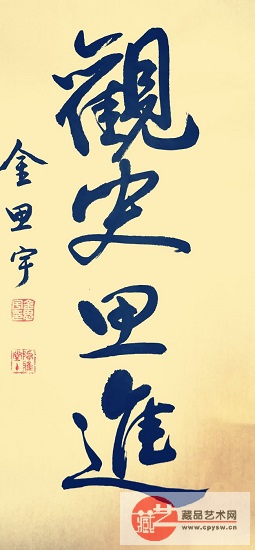 觀史思進
金思宇
藏艺
藏品艺术网
www.cpysw.cn